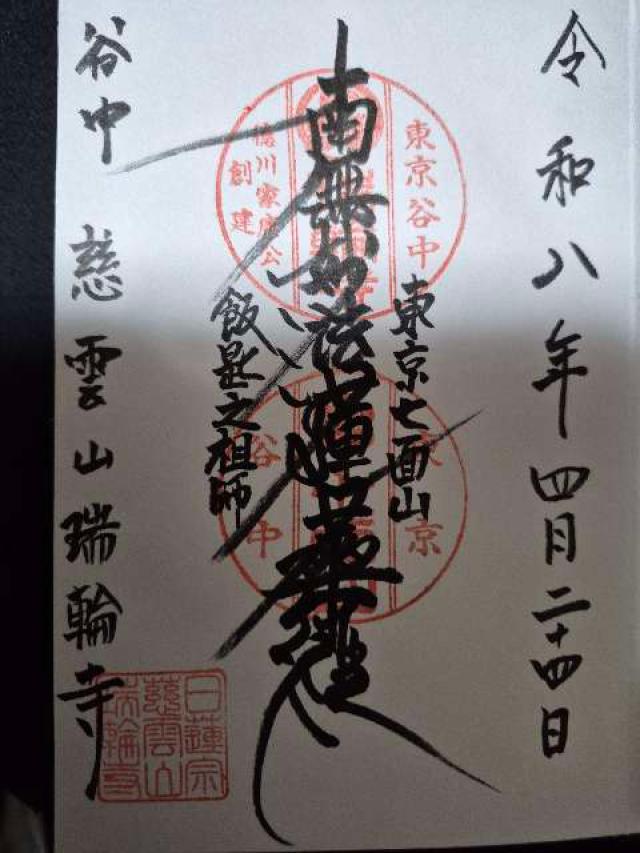 令和八年四月二十四日
東京谷中
東京七面山
東京
南無妙法蓮華経
徳川家康公
創建
飯匙之祖師
谷中
谷中 慈雲山瑞輪寺
日蓮宗
慈雲山
瑞輪寺